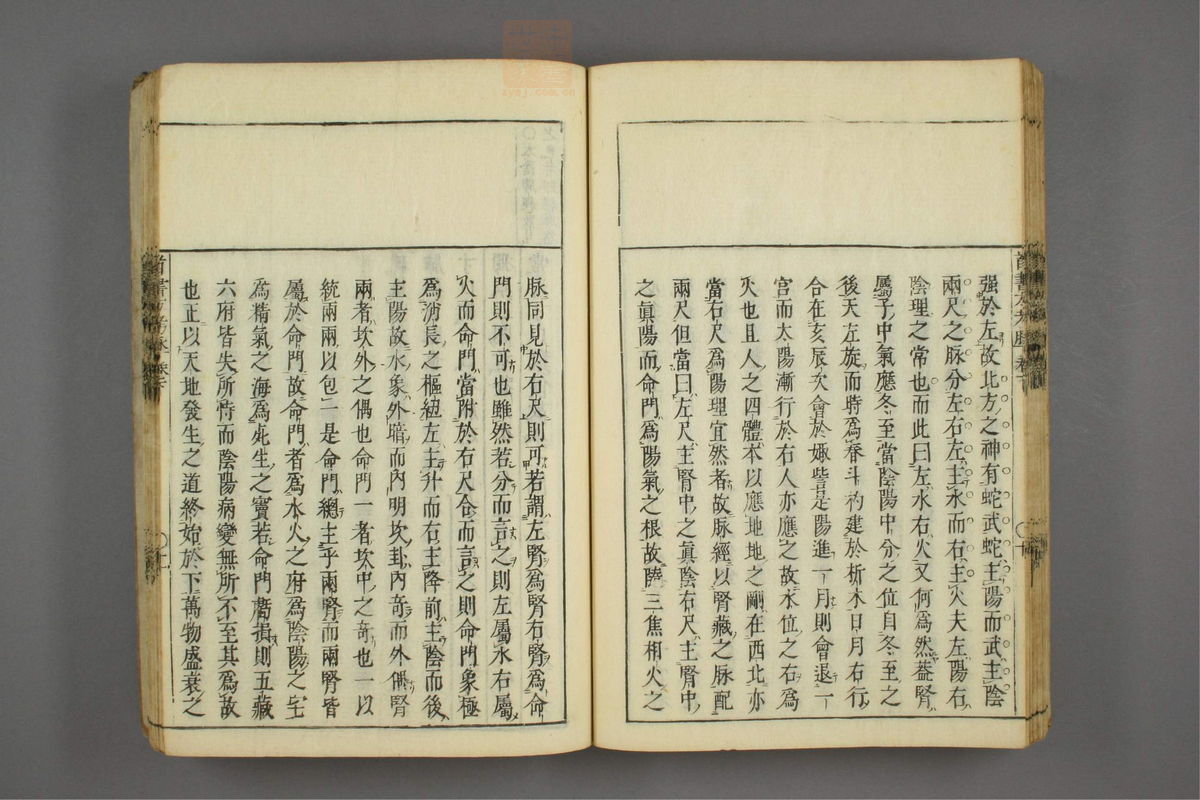 強於左故北方之神有蛇武蛇主陽而武主陰
兩尺之脉分左右左主水而右主火夫左陽右
陰理之常也而此曰左水右火又何爲然葢腎
屬子中氣應冬至當陰陽中分之位自冬至之
後天左旋而時爲春斗杓建於析木日月右行
合在亥辰次會於娵訾是陽進一月則會退一
宮而太陽漸行於右人亦應之故本位之右爲
火也且人之四體本以應地地之剛在西北亦
當右尺爲陽理宜然者故脉經以腎藏之脉配
兩尺但當曰左尺主腎中之眞陰右尺主腎中
之眞陽而命門爲陽氣之根故隨三焦相火之
脉同見於右尺則可若謂左腎爲腎右腎爲命
門則不可也雖然若分而言之則左屬水右屬
火而命門當附於右尺合而言之則命門象極
爲消長之樞紐左主升而右主降前主陰而後
主陽故水象外暗而內明坎卦內奇而外偶腎
兩者坎外之偶也命門一者坎中之奇也一以
統兩兩以包一是命門總主乎兩腎而兩腎皆
屬於命門故命門者爲水火之府爲陰陽之宅
爲精氣之海爲死生之竇若命門虧損則五藏
六府皆失所恃而陰陽病變無所不至其爲故
也正以天地發生之道終始於下萬物盛衰之
zyej.com.cn